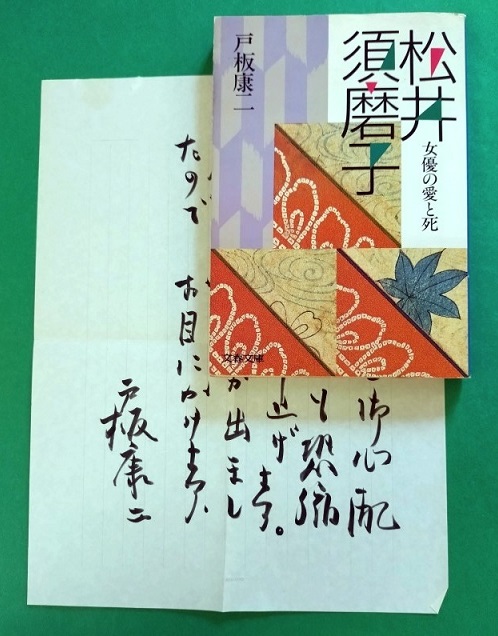 松井
須磨子
女優の愛と死
戸板康二
文春文庫
御心配
り恐縮
上げます。
が出まし
たので お目にかけます
戸板康二